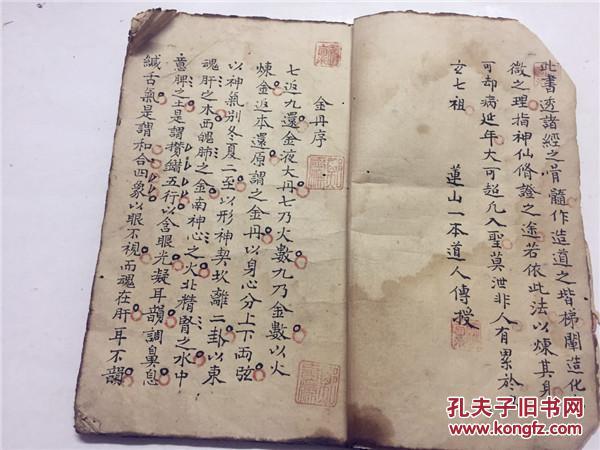 此書透諸經之骨髓作造道之堦梯闡造化
微之理指神仙脩證之途若依此法以煉其身
可却病延年大可超凡入聖莫泄非人有累於
玄七祖
蓮山一本道人傳授
金丹序
七返九還金液大丹七乃火數九乃金數以火
煉金返本還原謂之金丹以身心分上下両弦
以神氣别冬夏二至以形神契坎離二卦以東
魂肝之木西魄肺之金南神心之火北精腎之水中
意脾之土是謂攅簇五行以含眼光凝耳韻調鼻息
緘舌氣是謂和合四象以眼不視而魂在肝耳不韻
孔夫子旧书网
kongfz.com